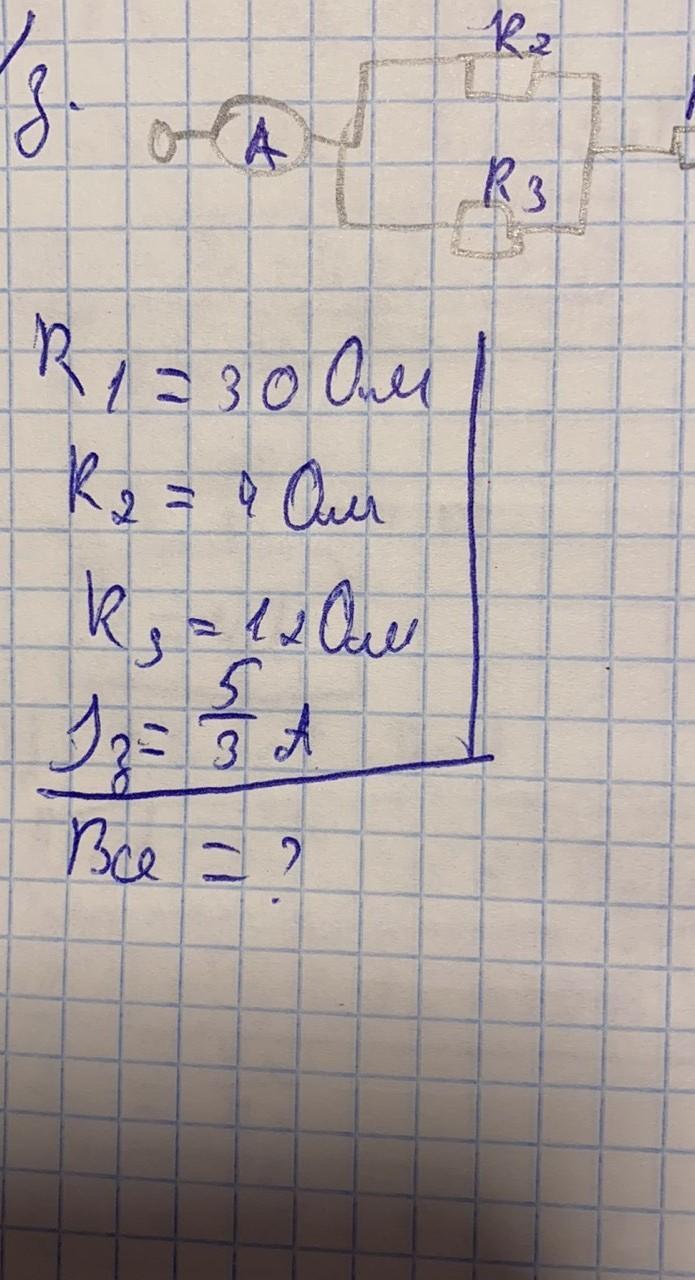 3.
R2
A
R3
R1 = 30 Ом
R2 = 4 Ом
R3 = 12 Ом
J3 = 5/3 А
Все = ?